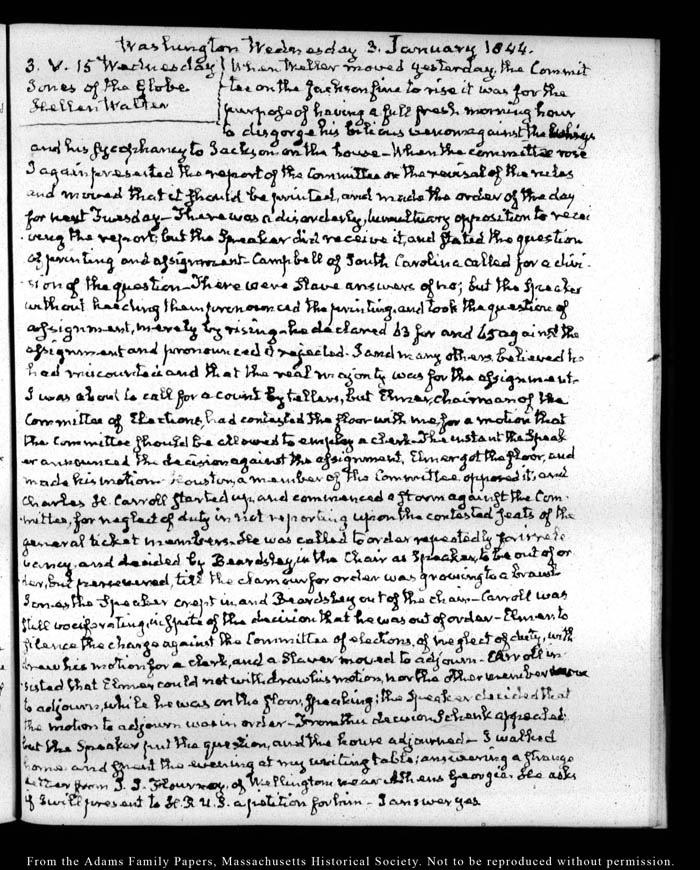 Washington Wednesday 3. January 1844.
3. V. 15 Wednesday
Jones of the Globe
Hellen Walter
When Weller moved yesterday, the Commit
tee on the Jackson fine to rise it was for the
purpose of having a full fresh morning hour
to disgorge his bilious venom against the
and his sycophancy to Jackson, on the house – When the committee rose
I again presented the report of the Committee on the revisal of the rules
and moved that it should be printed, and made the order of the day
for next Tuesday – There was a disorderly, tumultuary opposition to recei
ving the report, but the Speaker did receive it, and stated the question
of printing and assignment – Campbell of South Carolina called for a divi-
sion of the question – There were Slave answers of no; but the Speaker
without heeding them pronounced the printing, and took the question of
assignment, merely by rising – he declared 43 for and 45 against the
assignment and pronounced it rejected. I and many others believed he
had miscounted and that the real majority was for the assignment –
I was about to call for a count by tellers, but Elmer, chairman of the
Committee of Elections, had contested the floor with me, for a motion that
the Committee should be allowed to employ a clerk – The instant the Speak-
er announced the decision against the assignment, Elmer got the floor, and
made his motion – Houston, a member of the Committee opposed it, and
Charles H. Carroll started up, and commenced a storm against the Com-
mittee, for neglect of duty in not reporting upon the contested seats of the
general ticket members. He was called to order repeatedly for irrele
vancy, and decided by Beardsley, in the Chair as Speaker, to be out of or
der, but persevered, till the clamour for order was growing to a brawl
Jones the Speaker crept in and Beardsley out of the chair – Carroll was
still vociferating, in spite of the decision that he was out of order – Elmer, to
silence the charge against the Committee of elections, of neglect of duty, with
drew his motion for a clerk, and a Slaver moved to adjourn – Carroll in-
sisted that Elmer could not withdraw his motion, nor the other member
to adjourn, while he was on the floor, speaking; the Speaker decided that
the motion to adjourn was in order – From this decision Schenk appealed
but the Speaker put the question, and the house adjourned – I walked
home and spent the evening at my writing table; answering a strange
letter from J. J. Flournoy, of Wellington near Athens Georgia. He asks
if I will present to H.R.U.S. a petition for him – I answer yes
From the Adams Family Papers, Massachusetts Historical Society. Not to be reproduced without permission.